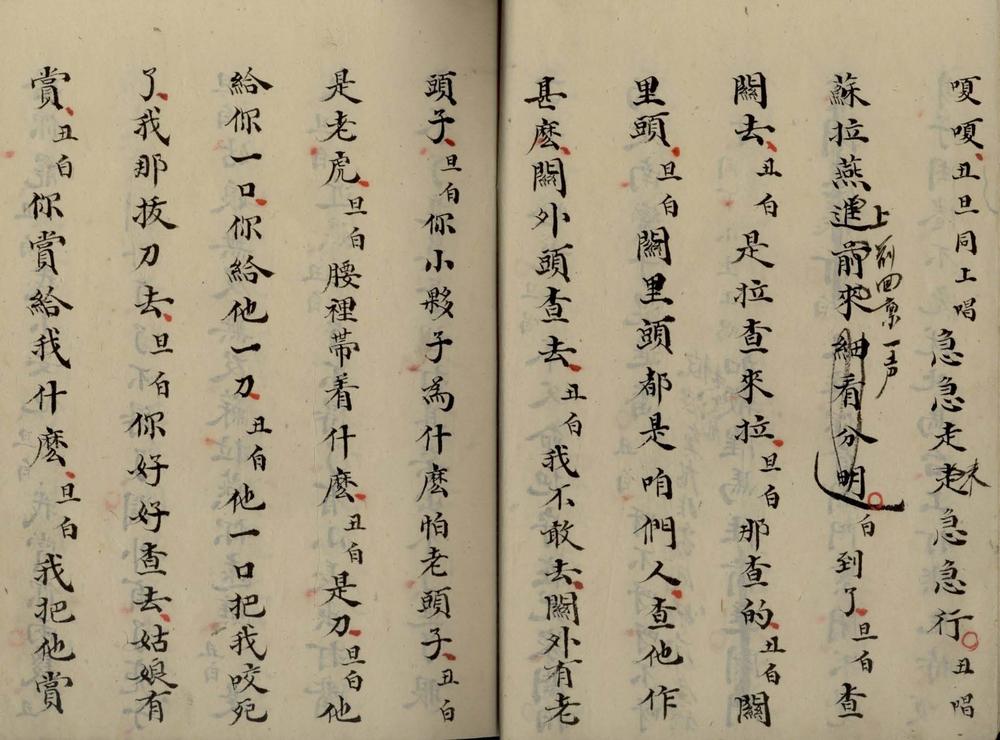 嗄嗄丑旦同上唱急急走走來急急行丑唱
蘇拉燕進前來細看分明白到了旦白查
上前回禀一声
關去丑白是拉查來拉旦白那查的丑白關
里頭旦白關里頭都是咱們人查他作
甚麽關外頭查去丑白我不敢去關外有老
頭子旦白你小夥子為什麽怕老頭子丑白
是老虎旦白腰裡帶着什麽丑白是刀旦白他
給你一口你給他一刀丑白他一口把我咬死
了我那拔刀去旦白你好好查去姑娘有
賞丑白你賞給我什麽旦白我把他賞